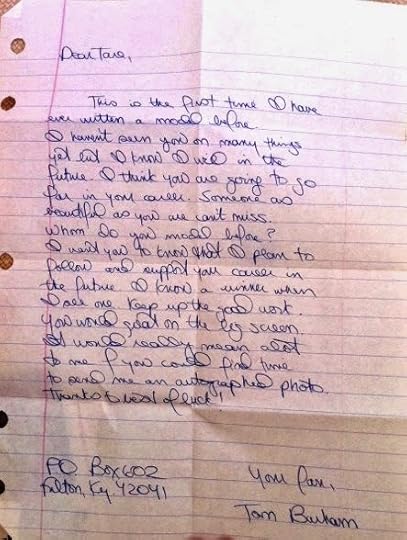 Dear Tara,
This is the first time I have
ever written a model before.
I haven't seen you on many things
yet but I know I will in the
future. I think you are going to go
far in your career. Someone as
beautiful as you are can't miss.
Whom do you model before?
I want you to know that I plan to
follow and support your career in
the future. I know a winner when
I see one. Keep up the good work.
You would great on the big screen.
It would really mean alot
to me if you could find time
to send me an autographed photo.
Thanks & best of luck!
PO Box 602
Fulton, Ky 42041
Your fan,
Tom